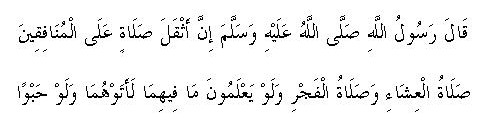 قَالَ رَسُولُ اللَّهِ صَلَّى اللَّهُ عَلَيْهِ وَسَلَّمَ إِنَّ أَثْقَلَ صَلَاةٍ عَلَى الْمُنَافِقِينَ
صَلَاةُ الْعِشَاءِ وَصَلَاةُ الْفَجْرِ وَلَوْ يَعْلَمُونَ مَا فِيهِمَا لَأَتَوْهُمَا وَلَوْ حَبْوًا